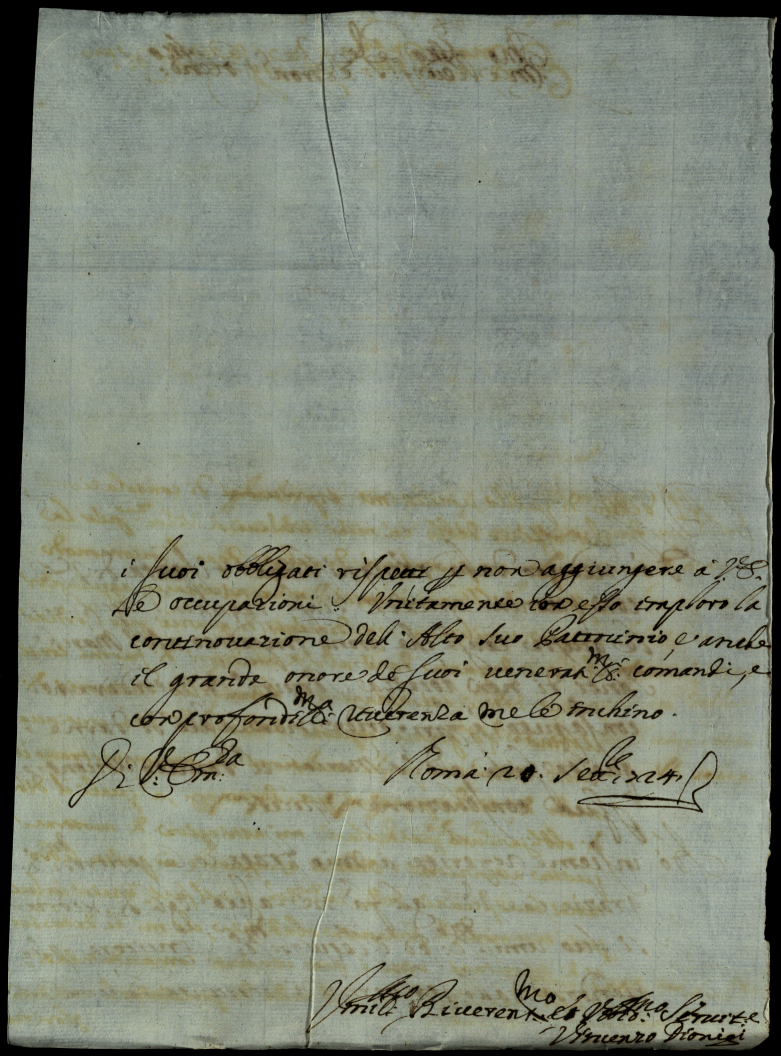 i suoi obbligati rispetti p non aggiungere à V. E.
le occupazioni. Unitamente con esso imploro la
continovazione dell' Alto suo Patrocinio, e anche
il grande onore de suoi venerat.mi comandi, e
con profondis.ma riverenza me le inchino.
Di V. Em.za Roma 20. Sett.e 1724.
Umil.mo Riveren.mo et Obb.mo Servit.e
Vincenzo Dionigi